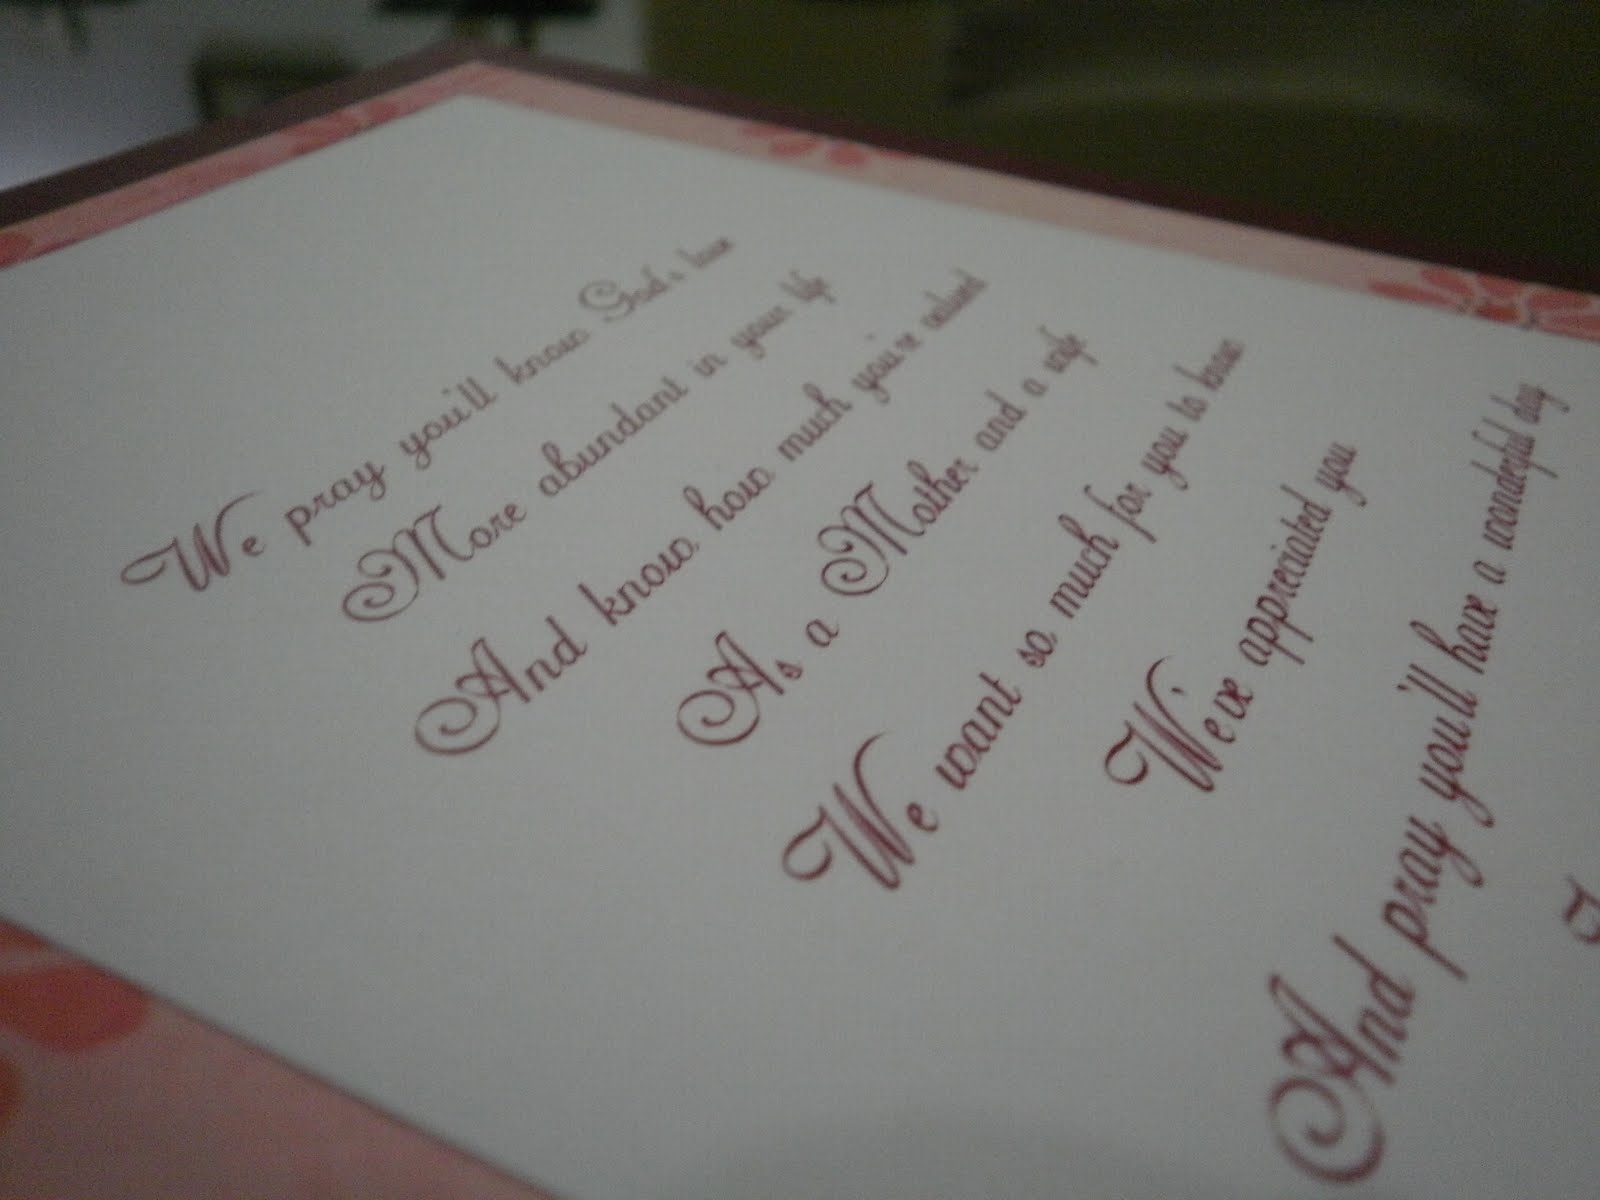 We pray you'll know God's love
More abundant in your life
And know how much you're valued
As a Mother and a wife
We want so much for you to know
We've appreciated you
And pray you'll have a wonderful day